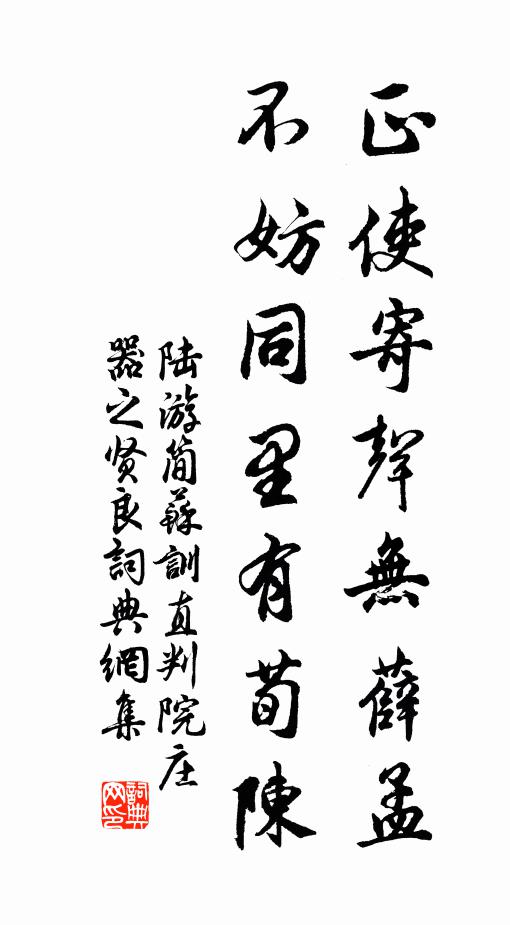 正使寄聲無薛孟
不妨同里有荀陳
陆游简蘇訓直判院庄
器之贤良詞典網集
詞典网印